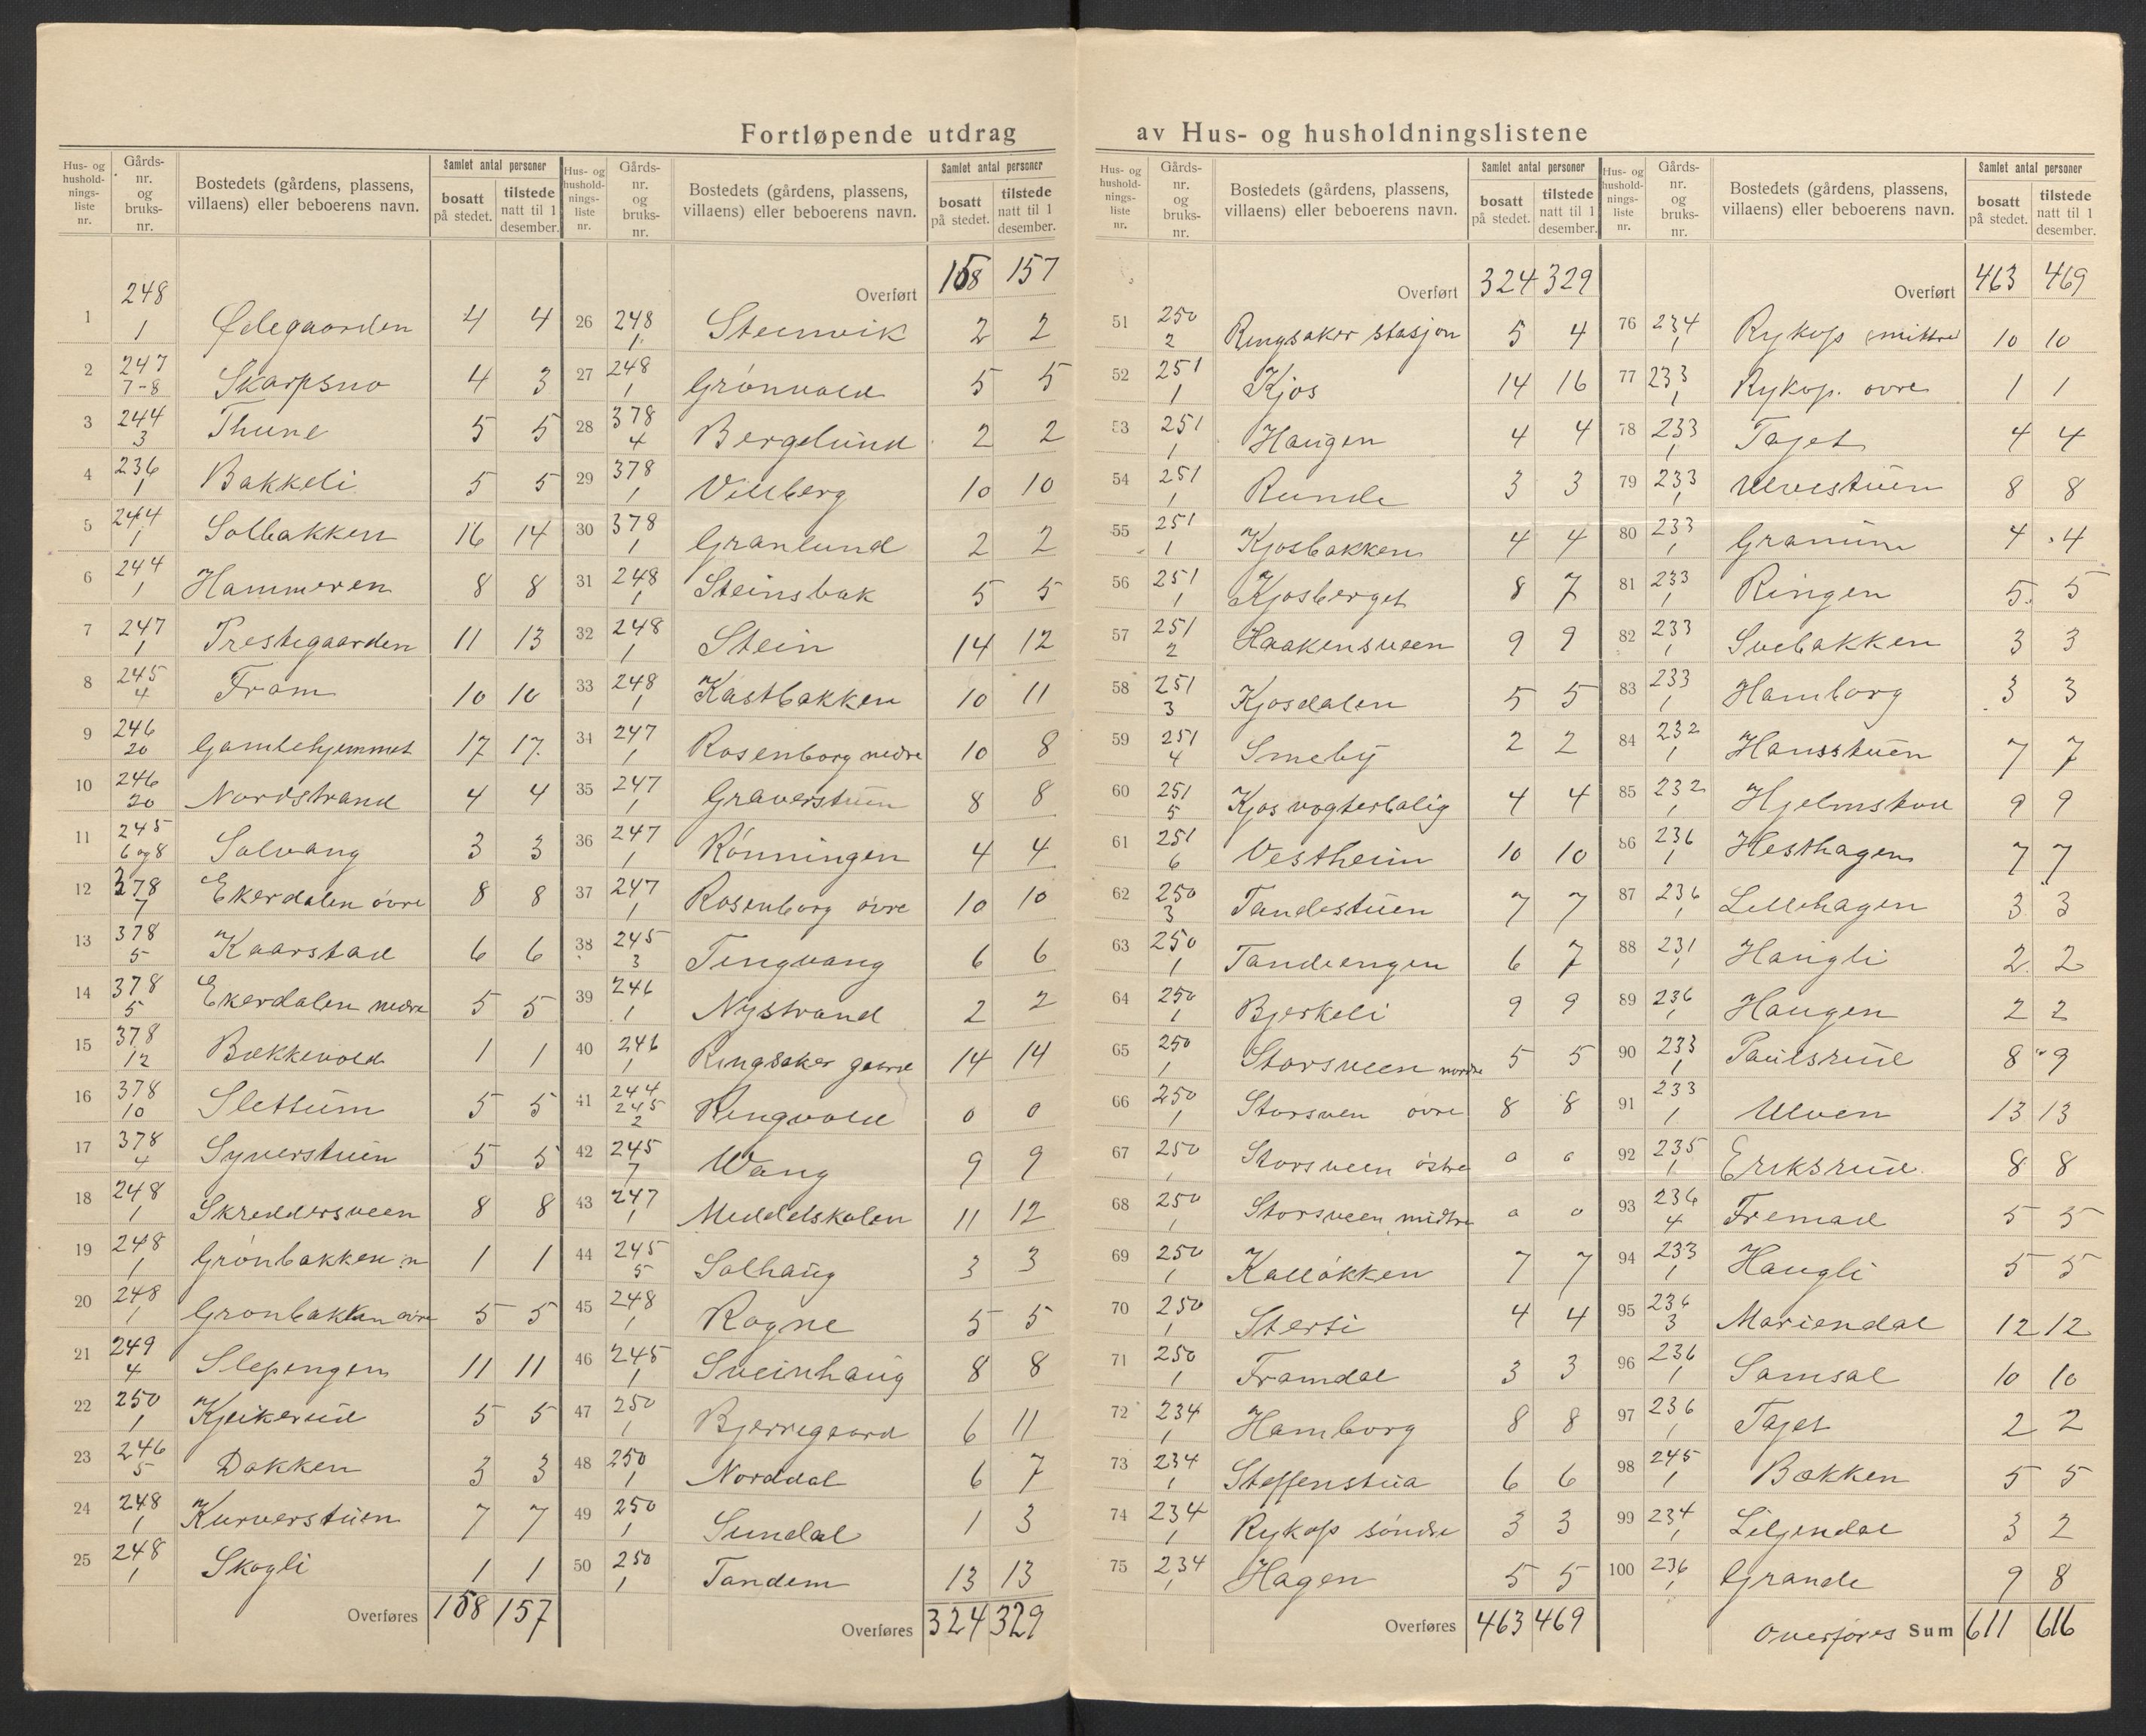 Fortløpende utdrag av Hus- og husholdningslistene
Hus- og husholdningsliste nr. | Gårds-nr. og bruks-nr. | Bostedets (gårdens, plassens, villaens) eller beboerens navn. | Samlet antal personer: bosatt på stedet. | tilstede natt til 1 desember.
1 | 248 1 | Ødegaarden | 4 | 4
2 | 247 7-8 | Skarpsno | 4 | 3
3 | 244 3 | Thune | 5 | 5
4 | 236 1 | Bakkeli | 5 | 5
5 | 244 1 | Solbakken | 16 | 14
6 | 244 1 | Hammeren | 8 | 8
7 | 247 1 | Prestegaarden | 11 | 13
8 | 245 4 | Fram | 10 | 10
9 | 246 20 | Gamlehjemmet | 17 | 17
10 | 246 20 | Nordstrand | 4 | 4
11 | 245 6 og 8 | Solvang | 3 | 3
12 | 378 7 | Ekerdalen övre | 8 | 8
13 | 378 5 | Kaarstad | 6 | 6
14 | 378 5 | Ekerdalen nedre | 5 | 5
15 | 378 12 | Bækkevold | 1 | 1
16 | 378 10 | Slettum | 5 | 5
17 | 378 4 | Syverstuen | 5 | 5
18 | 248 1 | Skreddersveen | 8 | 8
19 | 248 1 | Grönbakken n | 1 | 1
20 | 248 1 | Gronbakken övre | 5 | 5
21 | 249 4 | Slepengen | 11 | 11
22 | 250 1 | Kjeikerud | 5 | 5
23 | 246 5 | Dakken | 3 | 3
24 | 248 1 | Kurverstuen | 7 | 7
25 | 248 1 | Skogli | 1 | 1
Overføres 158 | 157
Hus- og husholdningsliste nr. | Gårds-nr. og bruks-nr. | Bostedets (gårdens, plassens, villaens) eller beboerens navn. | Samlet antal personer: bosatt på stedet. | tilstede natt til 1 desember.
Overført 158 | 157
26 | 248 1 | Steenvik | 2 | 2
27 | 248 1 | Grönvold | 5 | 5
28 | 378 4 | Bergelund | 2 | 2
29 | 378 1 | Villberg | 10 | 10
30 | 378 1 | Granlund | 2 | 2
31 | 248 1 | Steinsbak | 5 | 5
32 | 248 1 | Stein | 14 | 12
33 | 248 1 | Kastbakken | 10 | 11
34 | 247 1 | Rosenborg nedre | 10 | 8
35 | 247 1 | Graverstuen | 8 | 8
36 | 247 1 | Rönningen | 4 | 4
37 | 247 1 | Rosenborg övre | 10 | 10
38 | 245 3 | Tingvang | 6 | 6
39 | 246 1 | Nystrand | 2 | 2
40 | 246 1 | Ringsaker gaard | 14 | 14
41 | 244 245 2 | Ringvold | 0 | 0
42 | 245 7 | Wang | 9 | 9
43 | 247 1 | Middelskolen | 11 | 12
44 | 245 5 | Solhaug | 3 | 3
45 | 248 1 | Rogne | 5 | 5
46 | 245 1 | Sveinhaug | 8 | 8
47 | 250 1 | Bjerregaard | 6 | 11
48 | 250 1 | Norddal | 6 | 7
49 | 250 1 | Sundal | 1 | 3
50 | 250 1 | Tandem | 13 | 13
Overføres 324 | 329
Hus- og husholdningsliste nr. | Gårds-nr. og bruks-nr. | Bostedets (gårdens, plassens, villaens) eller beboerens navn. | Samlet antal personer: bosatt på stedet. | tilstede natt til 1 desember.
Overført 324 | 329
51 | 250 2 | Ringsaker stasjon | 5 | 4
52 | 251 1 | Kjos | 14 | 16
53 | 251 1 | Haugen | 4 | 4
54 | 251 1 | Runde | 3 | 3
55 | 251 1 | Kjosbakken | 4 | 4
56 | 251 1 | Kjosberget | 8 | 7
57 | 251 2 | Haakensveen | 9 | 9
58 | 251 3 | Kjosdalen | 5 | 5
59 | 251 4 | Smeby | 2 | 2
60 | 251 5 | Kjos vogterbolig | 4 | 4
61 | 251 6 | Vestheim | 10 | 10
62 | 250 3 | Tandestuen | 7 | 7
63 | 250 1 | Tandeengen | 6 | 7
64 | 250 1 | Bjerkeli | 9 | 9
65 | 250 1 | Storsveen nordre | 5 | 5
66 | 250 1 | Storsven övre | 8 | 8
67 | 250 1 | Storsveen östre | 0 | 0
68 | 250 1 | Storsveen midtre | 0 | 0
69 | 250 1 | Kallökken | 7 | 7
70 | 250 1 | Stersi | 4 | 4
71 | 250 1 | Framdal | 3 | 3
72 | 234 1 | Hamborg | 8 | 8
73 | 234 1 | Steffenstua | 6 | 6
74 | 234 1 | Rykop söndre | 3 | 3
75 | 234 1 | Hagen | 5 | 5
Overføres 463 | 469
Hus- og husholdningsliste nr. | Gårds-nr. og bruks-nr. | Bostedets (gårdens, plassens, villaens) eller beboerens navn. | Samlet antal personer: bosatt på stedet. | tilstede natt til 1 desember.
Overført 463 | 469
76 | 234 1 | Rykop mittre | 10 | 10
77 | 233 1 | Rykop. ovre | 1 | 1
78 | 233 1 | Tajet | 4 | 4
79 | 233 1 | Ulvestuen | 8 | 8
80 | 233 1 | Granum | 4 | 4
81 | 233 1 | Ringen | 5 | 5
82 | 233 1 | Svebakken | 3 | 3
83 | 233 1 | Hamborg | 3 | 3
84 | 232 1 | Hansstuen | 7 | 7
85 | 232 1 | Hjelmstad | 9 | 9
86 | 236 1 | Hesthagen | 7 | 7
87 | 236 1 | Lillehagen | 3 | 3
88 | 231 1 | Haugli | 2 | 2
89 | 236 1 | Haugen | 2 | 2
90 | 233 1 | Paulsrud | 8 | 9
91 | 233 1 | Ulven | 13 | 13
92 | 235 1 | Eriksrud | 8 | 8
93 | 236 4 | Fremad | 5 | 5
94 | 233 1 | Haugli | 5 | 5
95 | 236 3 | Mariendal | 12 | 12
96 | 236 1 | Samsal | 10 | 10
97 | 236 1 | Tajet | 2 | 2
98 | 245 1 | Bækken | 5 | 5
99 | 234 1 | Liljendal | 3 | 2
100 | 236 1 | Grande | 9 | 8
Overføres Sum 611 | 616